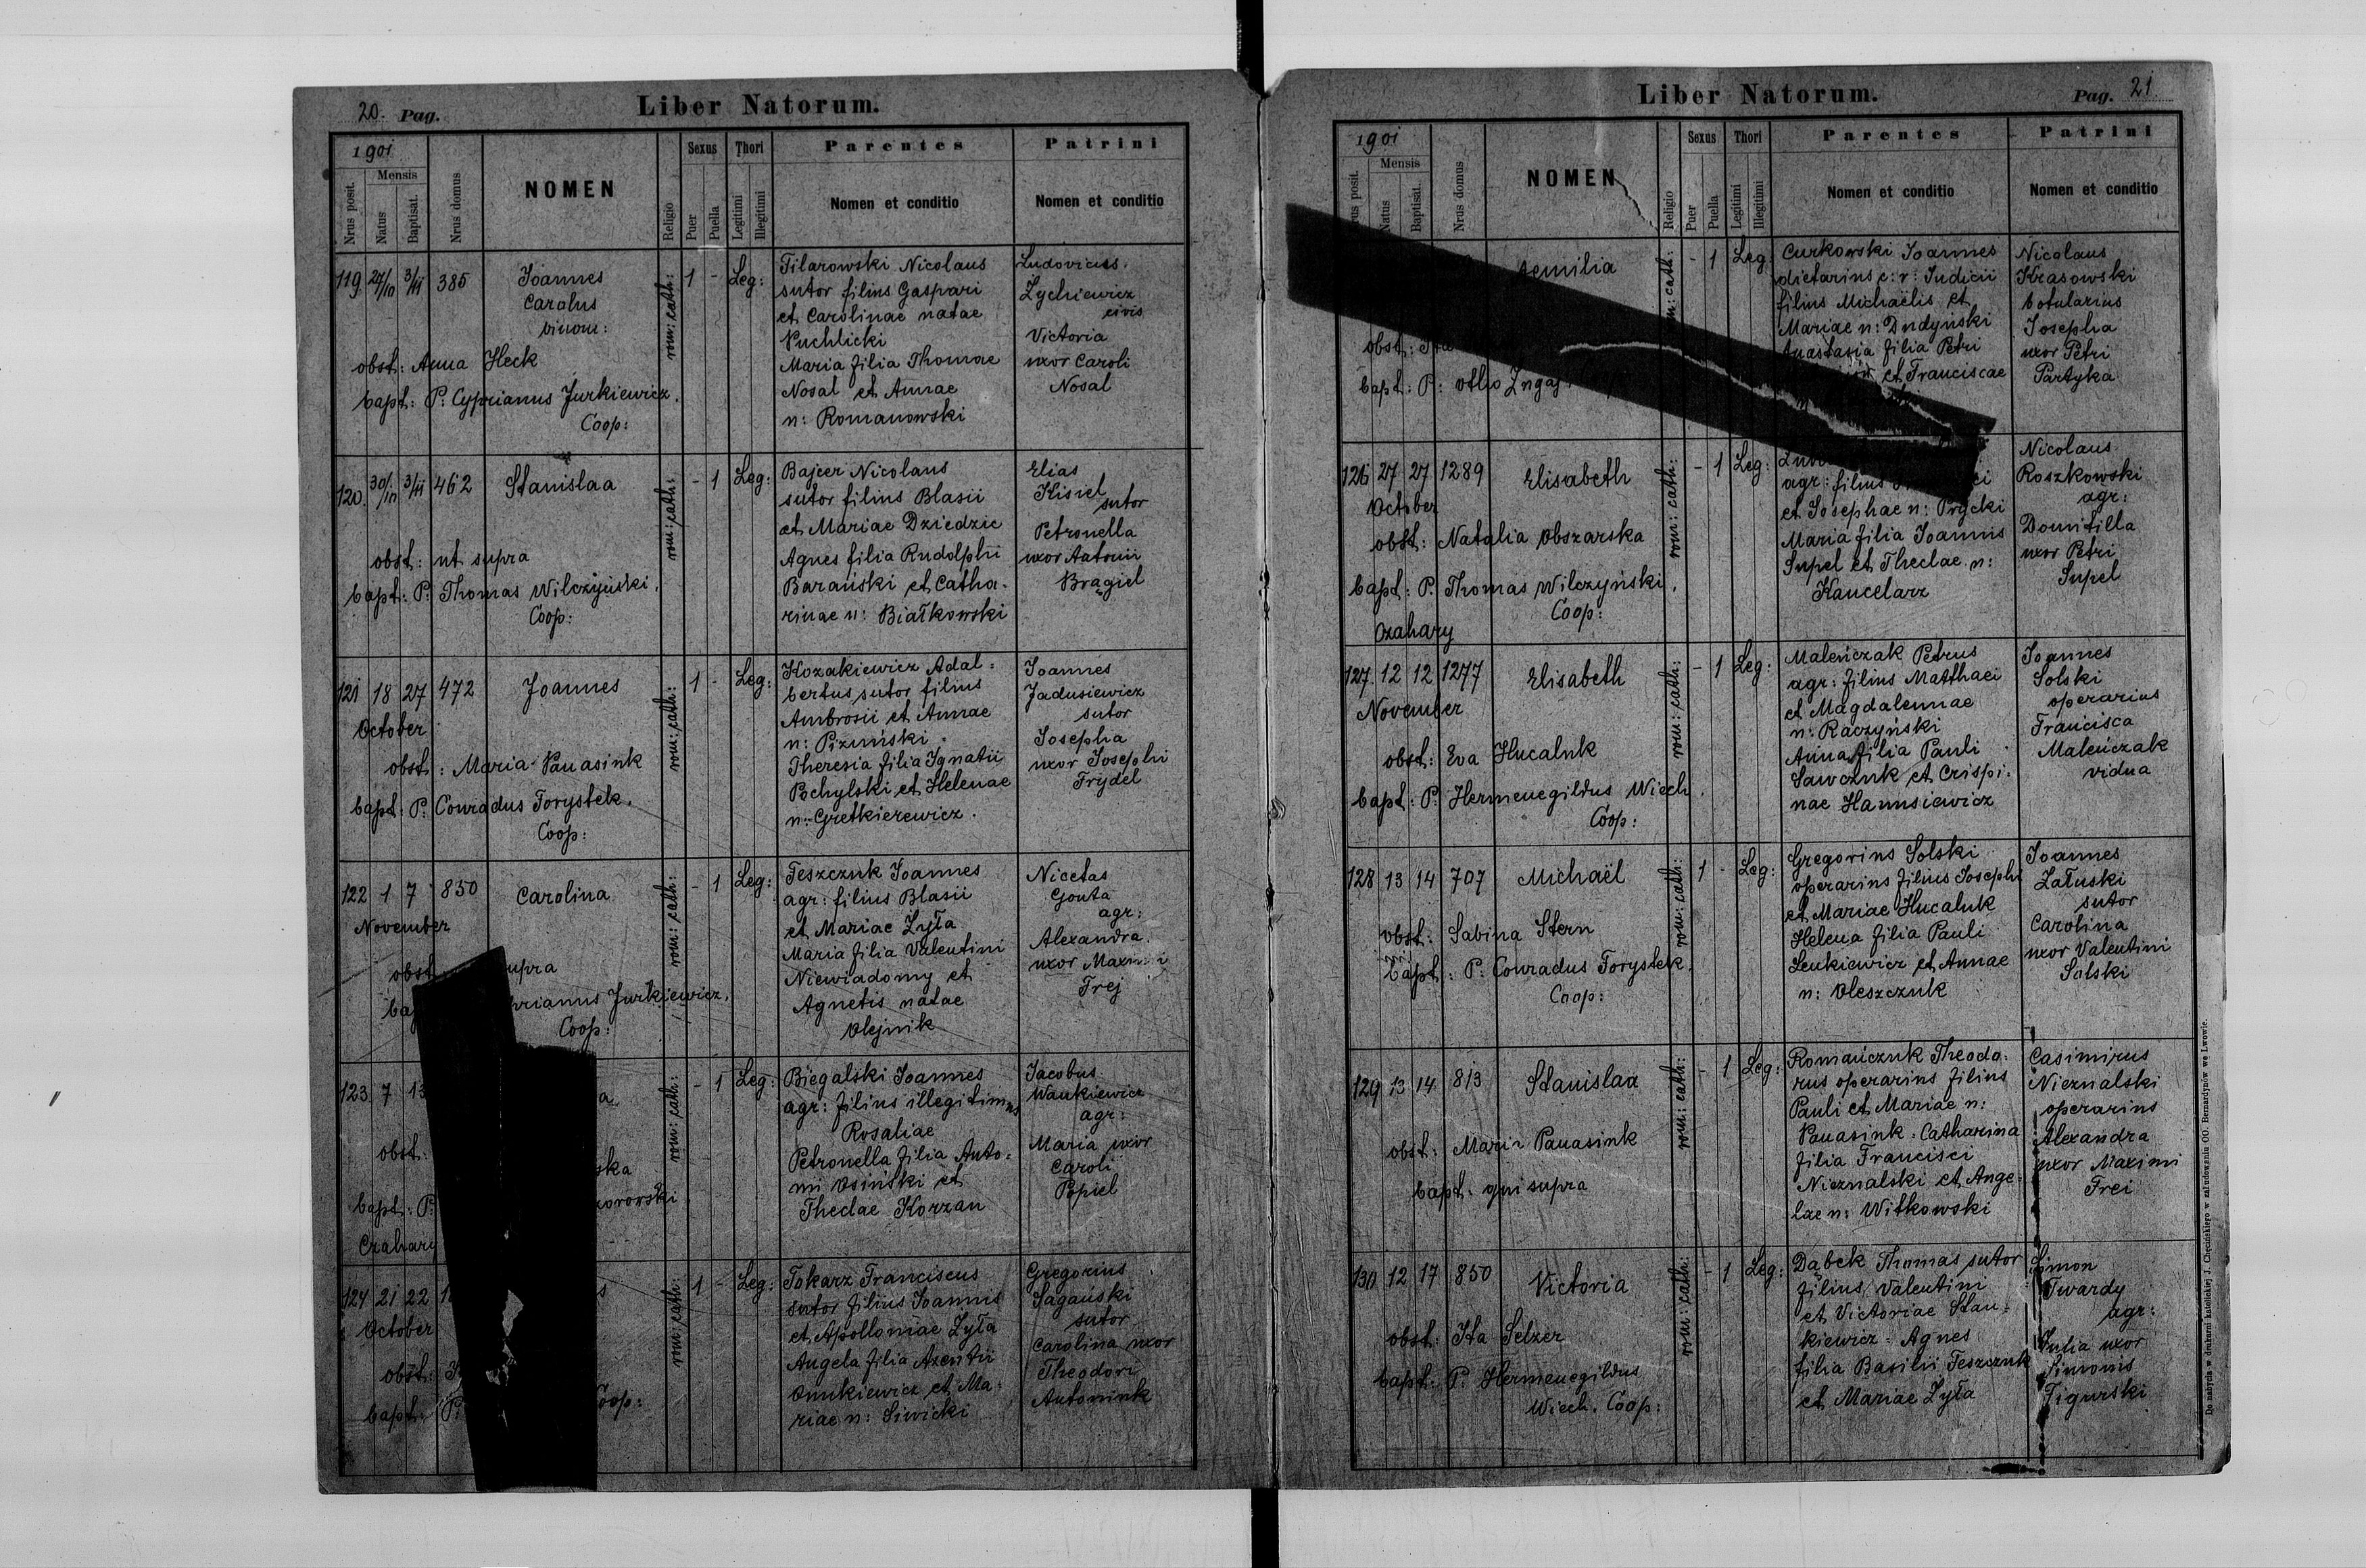 20. Pag. Liber Natorum.
1901
Nrus posit. Mensis Natus Baptisat. Nrus domus NOMEN Religio Sexus Puer Puella Thori Legitimi Illegitimi Parentes Nomen et conditio Patrini Nomen et conditio
119 27/10 3/11 385 Joannes Carolus binom: rom: cath: 1 - Leg:
obst: Anna Heck
bapt: P. Cyprianus Jurkiewicz.
Coop:
Tilarowski Nicolaus
sutor filius Gaspari
et Carolinae natae
Puchlicki
Maria filia Thomae
Nosal et Annae
n: Romanowski
Ludovicus
Zychiewicz
civis
Victoria
uxor Caroli
Nosal
120. 30/10 3/11 462 Stanislaa rom: cath: - 1 Leg:
obst: ut supra
bapt: P. Thomas Wilczyński.
Coop:
Bajcer Nicolaus
sutor filius Blasii
et Mariae Dziedzic
Agnes filia Rudolphi
Barański et Catha-
rinae n: Białkowski
Elias
Kisiel
sutor
Petronella
uxor Antonii
Brągiel
121 18 27 472 Joannes rom: cath: 1 - Leg:
October
obst: Maria Panasiuk
bapt: P. Conradus Torystek.
Coop:
Kozakiewicz Adal-
bertus sutor filius
Ambrosii et Annae
n: Pizuński
Theresia filia Ignatii
Pochylski et Helenae
n: Gretkierewicz.
Joannes
Jadusiewicz
sutor
Josepha
uxor Josephi
Trydel
122 1 7 850 Carolina rom: cath: - 1 Leg:
November
obst supra
Jurkiewicz.
Coop:
Teszczuk Joannes
agr: filius Blasii
et Mariae Zyła
Maria filia Valentini
Niewiadomy et
Agnetis natae
Olejnik
Nicetas
Gonta
agr:
Alexandra
uxor Maximi
Frej
123 7 13 rom: cath: - 1 Leg:
obst:
bapt: P.
Czahary
Biegalski Joannes
agr: filius illegitimus
Rosaliae
Petronella filia Anto-
nii Osiński et
Theclae Korzan
Jacobus
Wankiewicz
agr:
Maria uxor
Caroli
Popiel
124 21 22 rom: cath: 1 - Leg:
October
obst:
bapt: P. Coop:
Tokarz Franciscus
sutor filius Joannis
et Apolloniae Zyła
Angela filia Axentii
Onukiewicz et Ma-
riae n: Siwicki
Gregorius
Saganski
sutor
Carolina uxor
Theodori
Antoniuk
Liber Natorum. Pag. 21.
1901
Nrus posit. Mensis Natus Baptisat. Nrus domus NOMEN Religio Sexus Puer Puella Thori Legitimi Illegitimi Parentes Nomen et conditio Patrini Nomen et conditio
Aemilia cath: - 1 Leg:
obst:
bapt: P: Otho
Curkowski Joannes
dietarius c: r: Judicii
filius Michaëlis et
Mariae n: Dudyński
Anastasia filia Petri
et Franciscae
Nicolaus
Krasowski
botularius
Josepha
uxor Petri
Partyka
126 27 27 1289 Elisabeth rom: cath: - 1 Leg:
October
obst: Natalia Obszarska
bapt: P. Thomas Wilczyński.
Coop:
Czahary
agr: filius
et Josephae n: Prycki
Maria filia Joannis
Supel et Theclae n:
Kancelarz
Nicolaus
Roszkowski
agr:
Domitilla
uxor Petri
Supel
127. 12 12 1277 Elisabeth rom: cath: - 1 Leg:
November
obst: Eva Hucaluk
bapt: P. Hermenegildus Wiech.
Coop:
Maleńczak Petrus
agr: filius Matthaei
et Magdalennae
n: Raczyński
Anna filia Pauli
Sawczuk et Crispi-
nae Hanusiewicz
Joannes
Solski
operarius
Francisca
Maleńczak
vidua
128 13 14 707 Michaël rom: cath: 1 - Leg:
obst: Sabina Stern
bapt: P. Conradus Torystek.
Coop:
Gregorius Solski
operarius filius Josephi
et Mariae Hucaluk
Helena filia Pauli
Senkiewicz et Annae
n: Oleszczuk
Joannes
Załuski
sutor
Carolina
uxor Valentini
Solski
129 13 14 813 Stanislaa rom: cath: - 1 Leg:
obst: Maria Panasiuk
bapt: qui supra
Romańczuk Theodo-
rus operarius filius
Pauli et Mariae n:
Panasiuk. Catharina
filia Francisci
Nieznalski et Ange-
lae n: Witkowski
Casimirus
Nieznalski
operarius
Alexandra
uxor Maximi
Frei
130 12 17 850 Victoria rom: cath: - 1 Leg:
obst: Ita Selzer
bapt: P. Hermenegildus
Wiech. Coop:
Dąbek Thomas sutor
filius Valentini
et Victoriae Stan-
kiewicz. Agnes
filia Basilii Teszczuk
et Mariae Zyła
Simon
Twardy
agr:
Julia uxor
Simonis
Figurski
Do nabycia w drukarni katolickiej J. Chęcińskiego w zabudowaniu OO. Bernardynów we Lwowie.